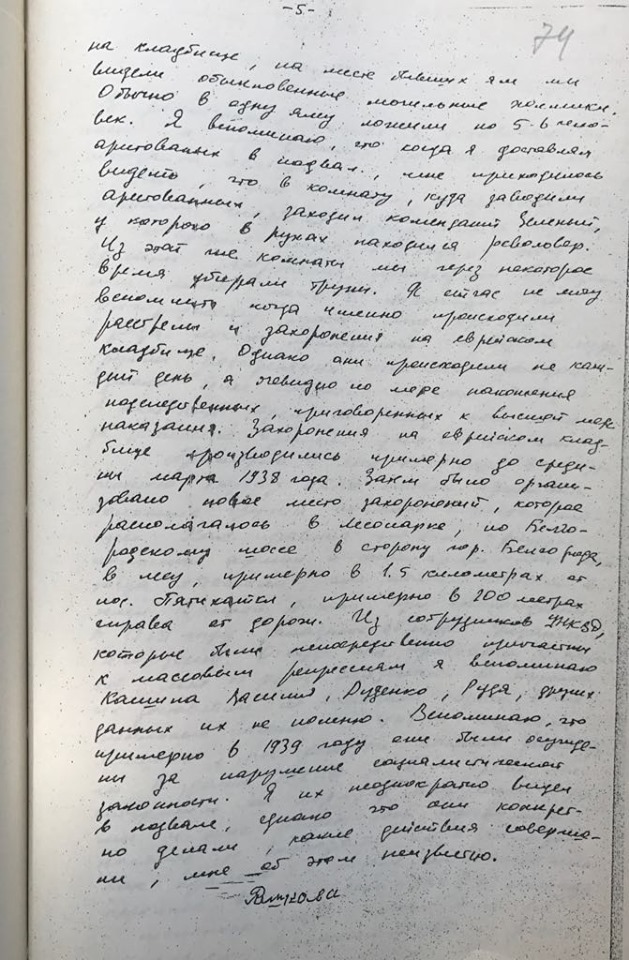 -5-
74
на кладбище, на месте бывших ям мы
видели обыкновенные могильные холмики.
Обычно в одну яму ложили по 5-6 чело-
век. Я вспоминаю, что когда я доставлял
арестованных в подвал, мне приходилось
видеть, что в комнату, куда заводили
арестованных, заходил комендант Зеленый,
у которого в руках находился револьвер.
Из этой же комнаты мы через некоторое
время убирали трупы. Я сейчас не могу
вспомнить когда именно происходили
расстрелы и захоронения на еврейском
кладбище. Однако они происходили не каж-
дый день, а очевидно по мере накопления
подследственных, приговоренных к высшей мере
наказания. Захоронения на еврейском клад-
бище производились примерно до среди-
ны марта 1938 года. Затем было органи-
зовано новое место захоронений, которое
располагалось в лесопарке, по Белго-
родскому шоссе в сторону гор. Белгорода,
в лесу, примерно в 1.5 километрах от
пос. Пятихатки, примерно в 200 метрах
справа от дороги. Из сотрудников УНКВД,
которые были непосредственно причастны
к массовым репрессиям я вспоминаю
Кашина Василия, Руденко, Рудя, других
данных их не помню. Вспоминаю, что
примерно в 1939 году они были осужде-
ны за нарушение социалистической
законности. Я их неоднократно видел
в подвале, однако что они конкрет-
но делали, какие действия соверша-
ли, мне об этом неизвестно.